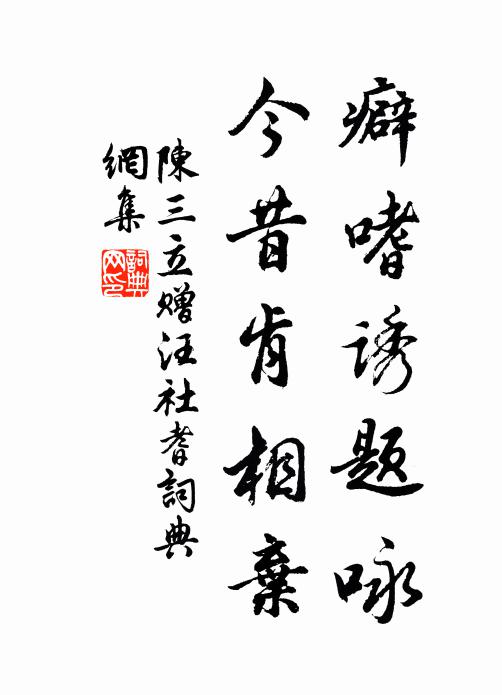 癖嗜誘題咏
今昔肯相棄
陳三立赠汪社耆詞典
網集
詞典網印